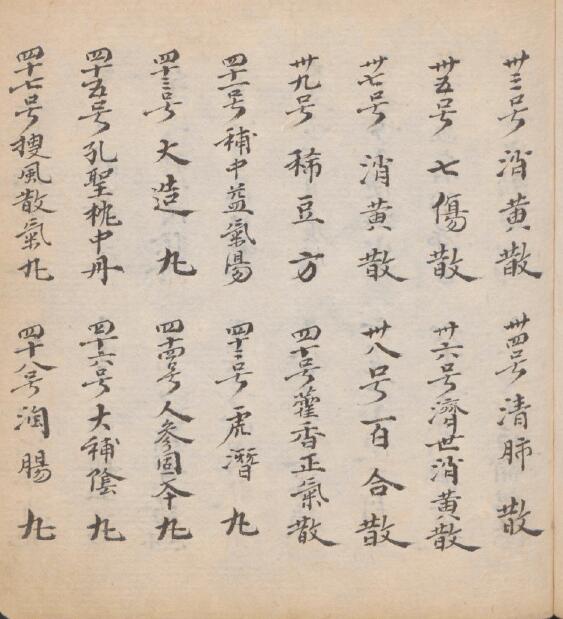 卅三号 消黄散
卅四号 清肺散
卅五号 七傷散
卅六号 濟世消黄散
卅七号 消黄散
卅八号 百合散
卅九号 稀豆方
四十号 藿香正氣散
四十一号 補中益氣湯
四十二号 虎潛丸
四十三号 大造丸
四十四号 人参固本丸
四十五号 孔聖枕中丹
四十六号 大補陰丸
四十七号 搜風散氣丸
四十八号 潤腸丸